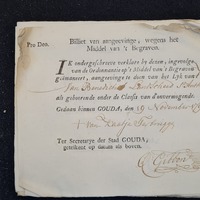 Pro Deo.
Billiet van aangeevinge, wegens het
Middel van 't Begraven.
IK ondergeschreven verklare by dezen, ingevolge
van de Ordonnantie op 't Middel van 't Begraven
geëmaneert, aangeevinge te doen van het Lyk van
Jan
als gehoorende onder de Classis van d'onvermogende.
Gedaan binnen GOUDA, den 19 November
Ter Secretarye der Stad GOUDA,
geteikent op datum als boven.